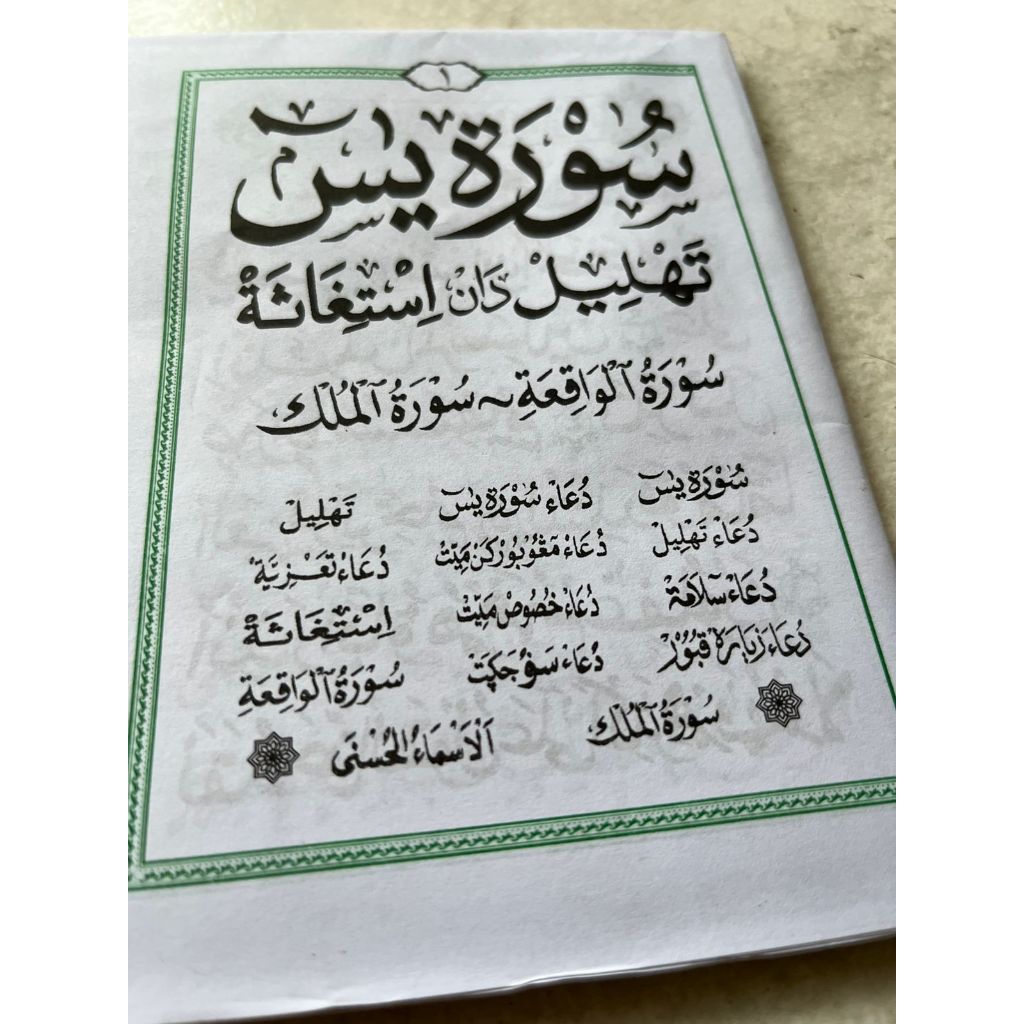 ١
سُوْرَة يٰسٓ
تَهْلِيْل دَانْ اِسْتِغَاثَةْ
سُوْرَةُ ٱلْوَاقِعَةِ ~ سُوْرَةُ ٱلْمُلْكِ
سُوْرَة يٰسٓ دُعَاءْ سُوْرَة يٰسٓ تَهْلِيْل
دُعَاءْ تَهْلِيْل دُعَاءْ مڠُوْبُوْرْكَنْ مَيِّتْ دُعَاءْ تَعْزِيَّةْ
دُعَاءْ سَلَامَةْ دُعَاءْ خُصُوصْ مَيِّتْ اِسْتِغَاثَةْ
دُعَاءْ زِيَارَةْ قُبُوْرْ دُعَاءْ سَڤُوْ جَكَتْ سُوْرَةُ ٱلْوَاقِعَةِ
سُوْرَةُ ٱلْمُلْكِ اَلْاَسْمَاءُ الْحُسْنَى